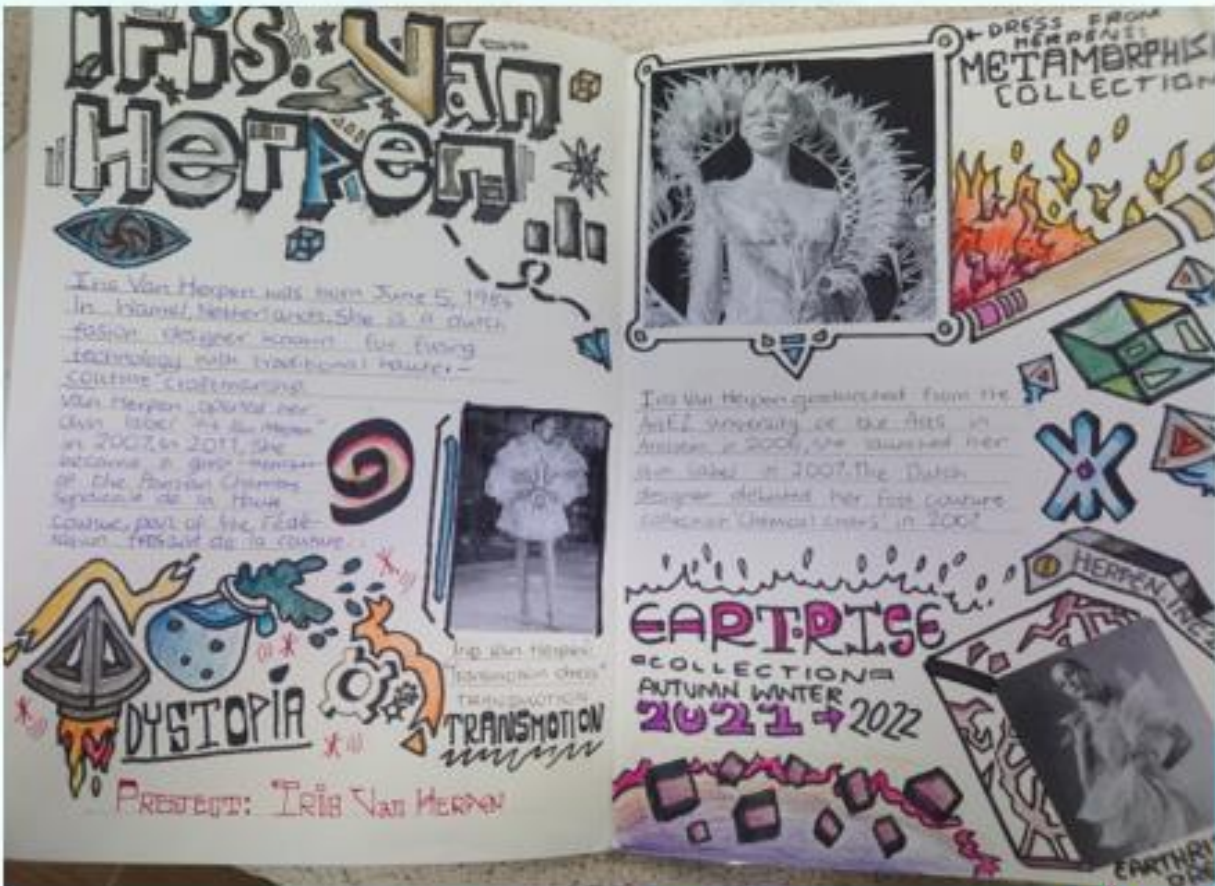 Iris. Van
Herpen
Iris Van Herpen was born June 5, 1984
In Wamel, Netherlands. She is a dutch
fasion designer known for fusing
technology with traditional haute-
couture craftmanship
Van Herpen opened her
own label
in 2007. In 2011, She
became a guest member
of the Parisian Chambre
Syndicale de la Haute
Couture, part of the Fédé-
de la couture
DYSTOPIA
Iris Van Herpen
"Transmotion dress"
TRANSMOTION
TRANSMOTION
PROJECT: IRIS VAN HERPEN
DRESS FROM
HERPENS:
METAMORPHISI
COLLECTION
Iris Van Herpen graduated from the
ArtEZ University of the Arts in
Arnhem in 2006, she launched her
own label in 2007. The Dutch
designer debuted her first couture
collection 'Chemical Crows' in 2007
HERPEN.INC
EARTRISE
COLLECTION
AUTUMN WINTER
2021 → 2022
EARTHRI